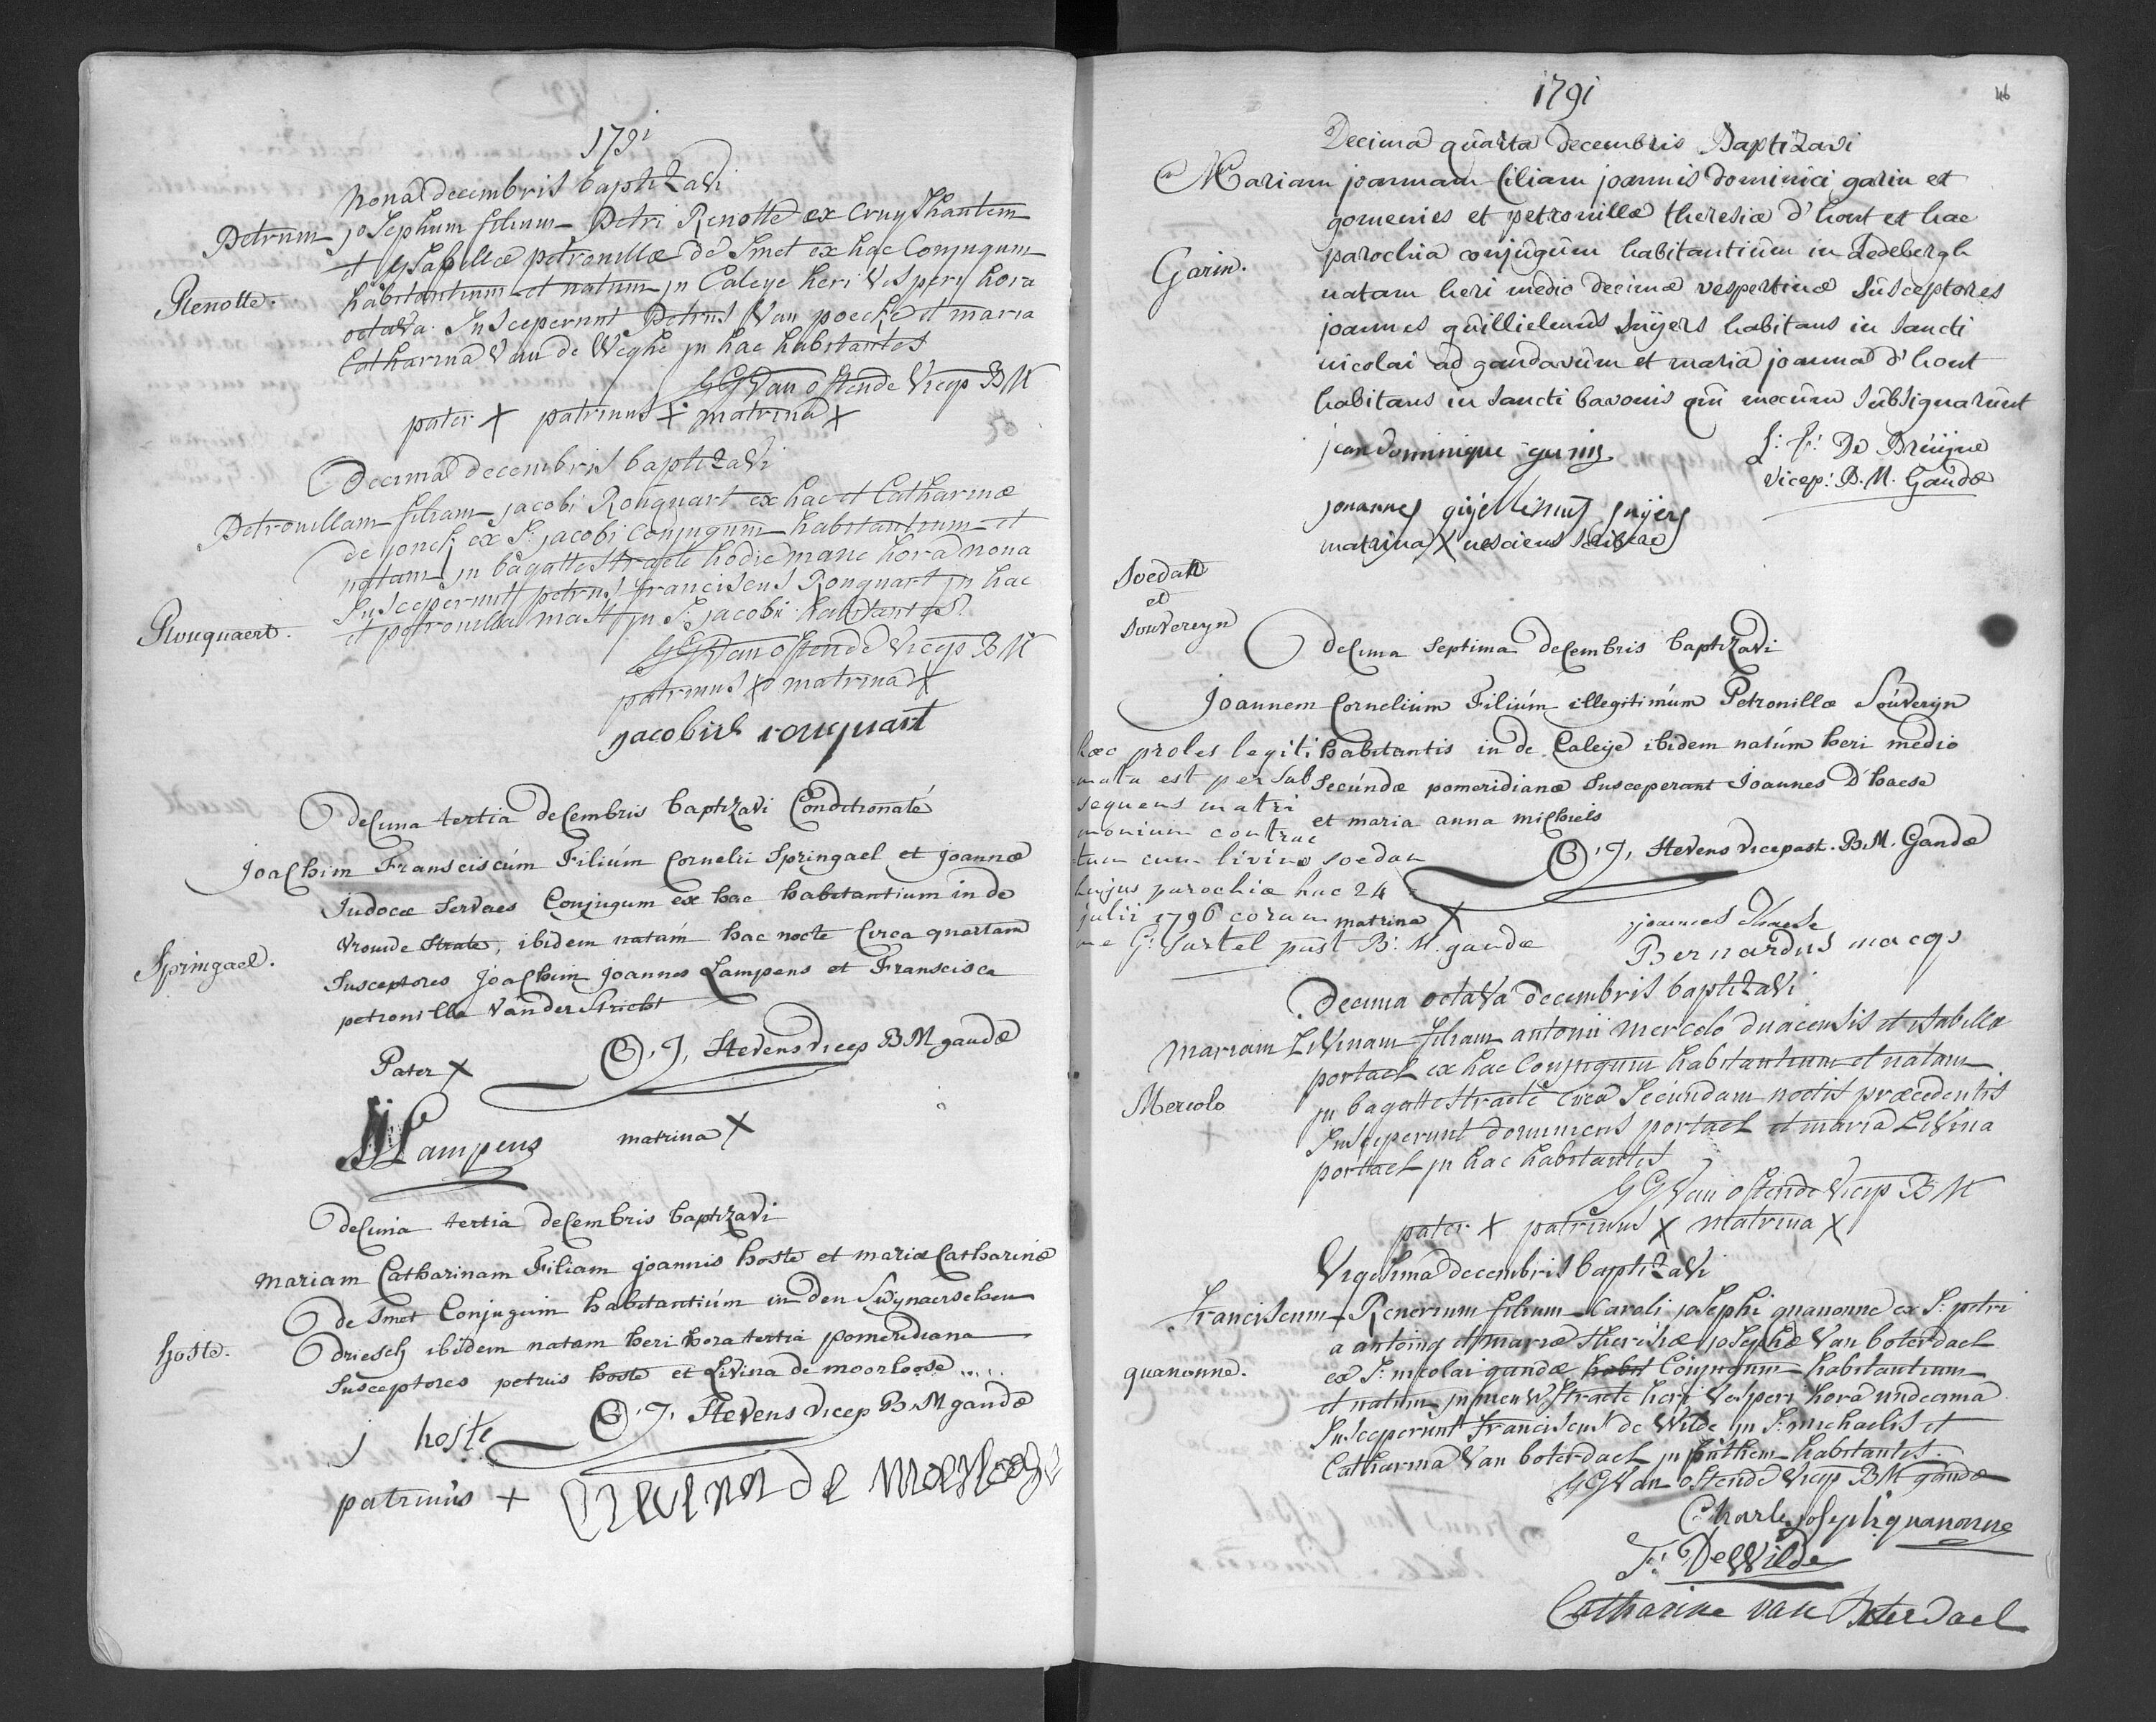 1791
Nona decembris baptizavi
Petrum josephum filium Petri Renotte ex Cruyshautem
et ysabellæ petronillæ de Smet ex hac Conjugum
Renotte.
habitantium et natum jn Caleye heri Vespery hora
octava. Susceperunt Petrus Van poecke et maria
Catharina Van de Weghe jn hac habitantes
GG Van ostende Vicep B M
pater X patrinus X matrina X
Decima decembris baptizavi
Petronillam filiam jacobi Rouquart ex hac et Catharinæ
de jonck ex S: jacobi Conjugum habitantium et
natam jn bagattestraete hodie mane hora nona
Susceperunt petrus franciscus Rouquart jn hac
Rouquaert.
et petronilla mast jn S: jacobi habitantes
GG Van ostende Vicep B M
patrinus X matrina X
jacobus rouquart
decima tertia decembris baptizavi Conditionaté
Joachim Fransciscúm Filiúm Cornelii Springael et joannæ
Judocæ Servaes Conjugum ex hac habitantium in de
vroude Strate, ibidem natam hac nocte Circa quartam
Springael.
Susceptores Joachim joannes Lampens et Franscisca
petronilla Vander Stricht
B. J. Stevens vicep B M gandæ
Pater X
JJ Lampens
matrina X
decima tertia decembris baptizavi
Mariam Catharinam Filiam joannis hoste et mariæ Catharinæ
de Smet Conjugum habitantiúm in den Swynaerschen
hoste.
driesch ibidem natam heri hora tertia pomeridiana
Susceptores petrus hoste et Livina de moorloose ....
B. J. Stevens vicep B M gandæ
j hoste
patrinús + de
1791
46
Decima quarta decembris Baptizavi
Mariam joannam filiam joannis dominici garin et
gomenies et petronillæ theresiæ d'hont et hac
Garin.
parochia conjugum habitantium in Ledebergh
natam heri medio decimæ vespertinæ susceptores
joannes guillielmus Snÿers habitans in sancti
nicolai ad gandavum et maria joanna d'hont
habitans in sancti bavonis qui mecum subsignarunt
jean dominique garin
J: F: De Brüijne
vicep: B. M. Gandæ
joannes Snÿers
matrina X nesciens scribere
Soedan
et
Souvereyn
decima Septima decembris baptizavi
Joannem Cornelium Filiúm illegitimúm Petronillæ Soúvereyn
habitantis in de Caleije ibidem natúm heri medio
Secúndæ pomeridianæ Susceperunt Joannes D'haese
et maria anna michiels
hæc proles legiti
mata est per sub
sequens matri
monium contrac
tum cum livino soedan
hujus parochiæ hac 24
julii 1796 coram
me G: Sartel past B: M. gandæ
B. J. Stevens vicepast. B. M. Gandæ
matrina X
joannes Dhaese
Bernardus macqs
Decima octava decembris baptizavi
Mariam Livinam filiam antonii Mercolo duacensis et isabellæ
portael ex hac Conjugum habitantium et natam
Mercolo
jn bagattestraete circa Secundam noctis præcedentis
Susceperunt dominicus portael et maria Livina
portael jn hac habitantes
GG Van ostende Vicep B M
pater X patrinus X matrina X
Vigesima decembris baptizavi
Franciscum Renerium filium Caroli josephi quanonne ex S: petri
a antoing et mariæ theresiæ josephæ Van boterdael
quanonne.
ex S: nicolai gandæ habit Conjugum habitantium
et natum jn nieuwstraete heri Vesperi hora undecima
Susceperunt Franciscus de Wilde jn S: michaelis et
Catharina Van boterdael jn habitantes
GG Van ostende Vicep B M gandæ
Charle joseph quanonne
F: DeWilde
Catharine van Boterdael